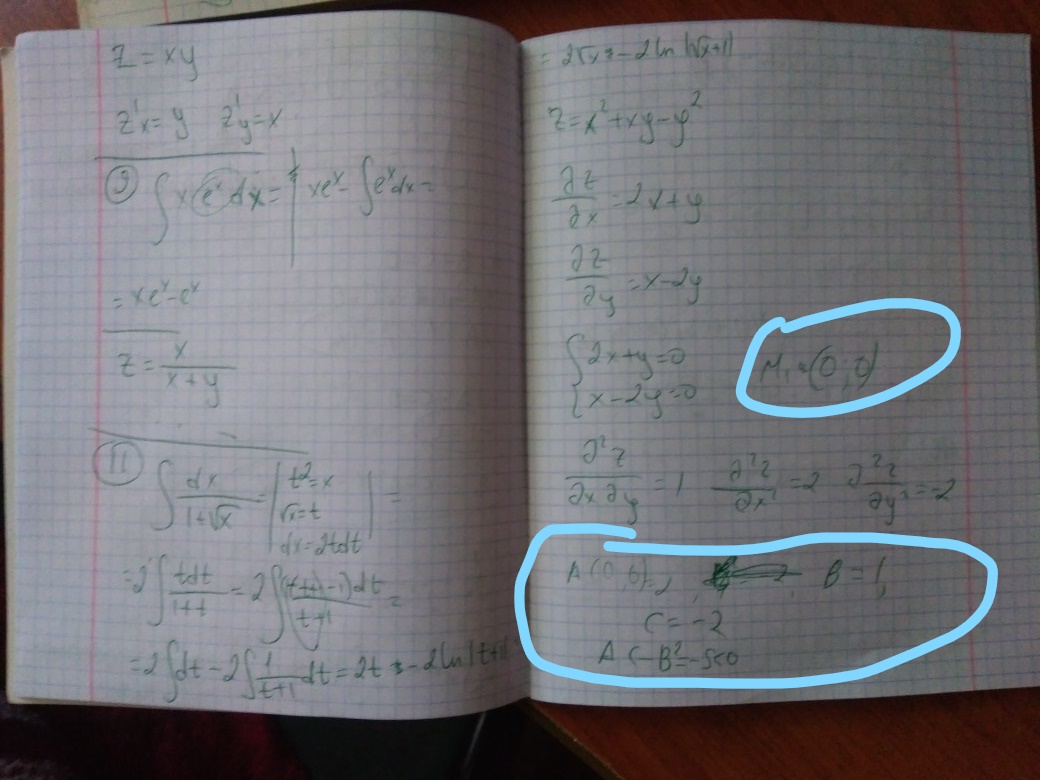 Z = xy
z'x = y   z'y = x
⑨ ∫ x eˣ dx = | xeˣ - ∫eˣdx =
= xeˣ - eˣ
Z = x/(x+y)
⑪ ∫ dx/(1+√x) = | t² = x
√x = t
dx = 2tdt | =
= 2∫ tdt/(1+t) = 2∫ ((t+1)-1)dt/(t+1) =
= 2∫dt - 2∫ 1/(t+1) dt = 2t - 2ln|t+1|
= 2√x - 2ln|√x+1|
Z = x² + xy - y²
∂z/∂x = 2x + y
∂z/∂y = x - 2y
{ 2x + y = 0
{ x - 2y = 0   M₁ = (0; 0)
∂²z/∂x∂y = 1   ∂²z/∂x² = 2   ∂²z/∂y² = -2
A(0,0) = 2,   B = 1,
C = -2
AC - B² = -5 < 0